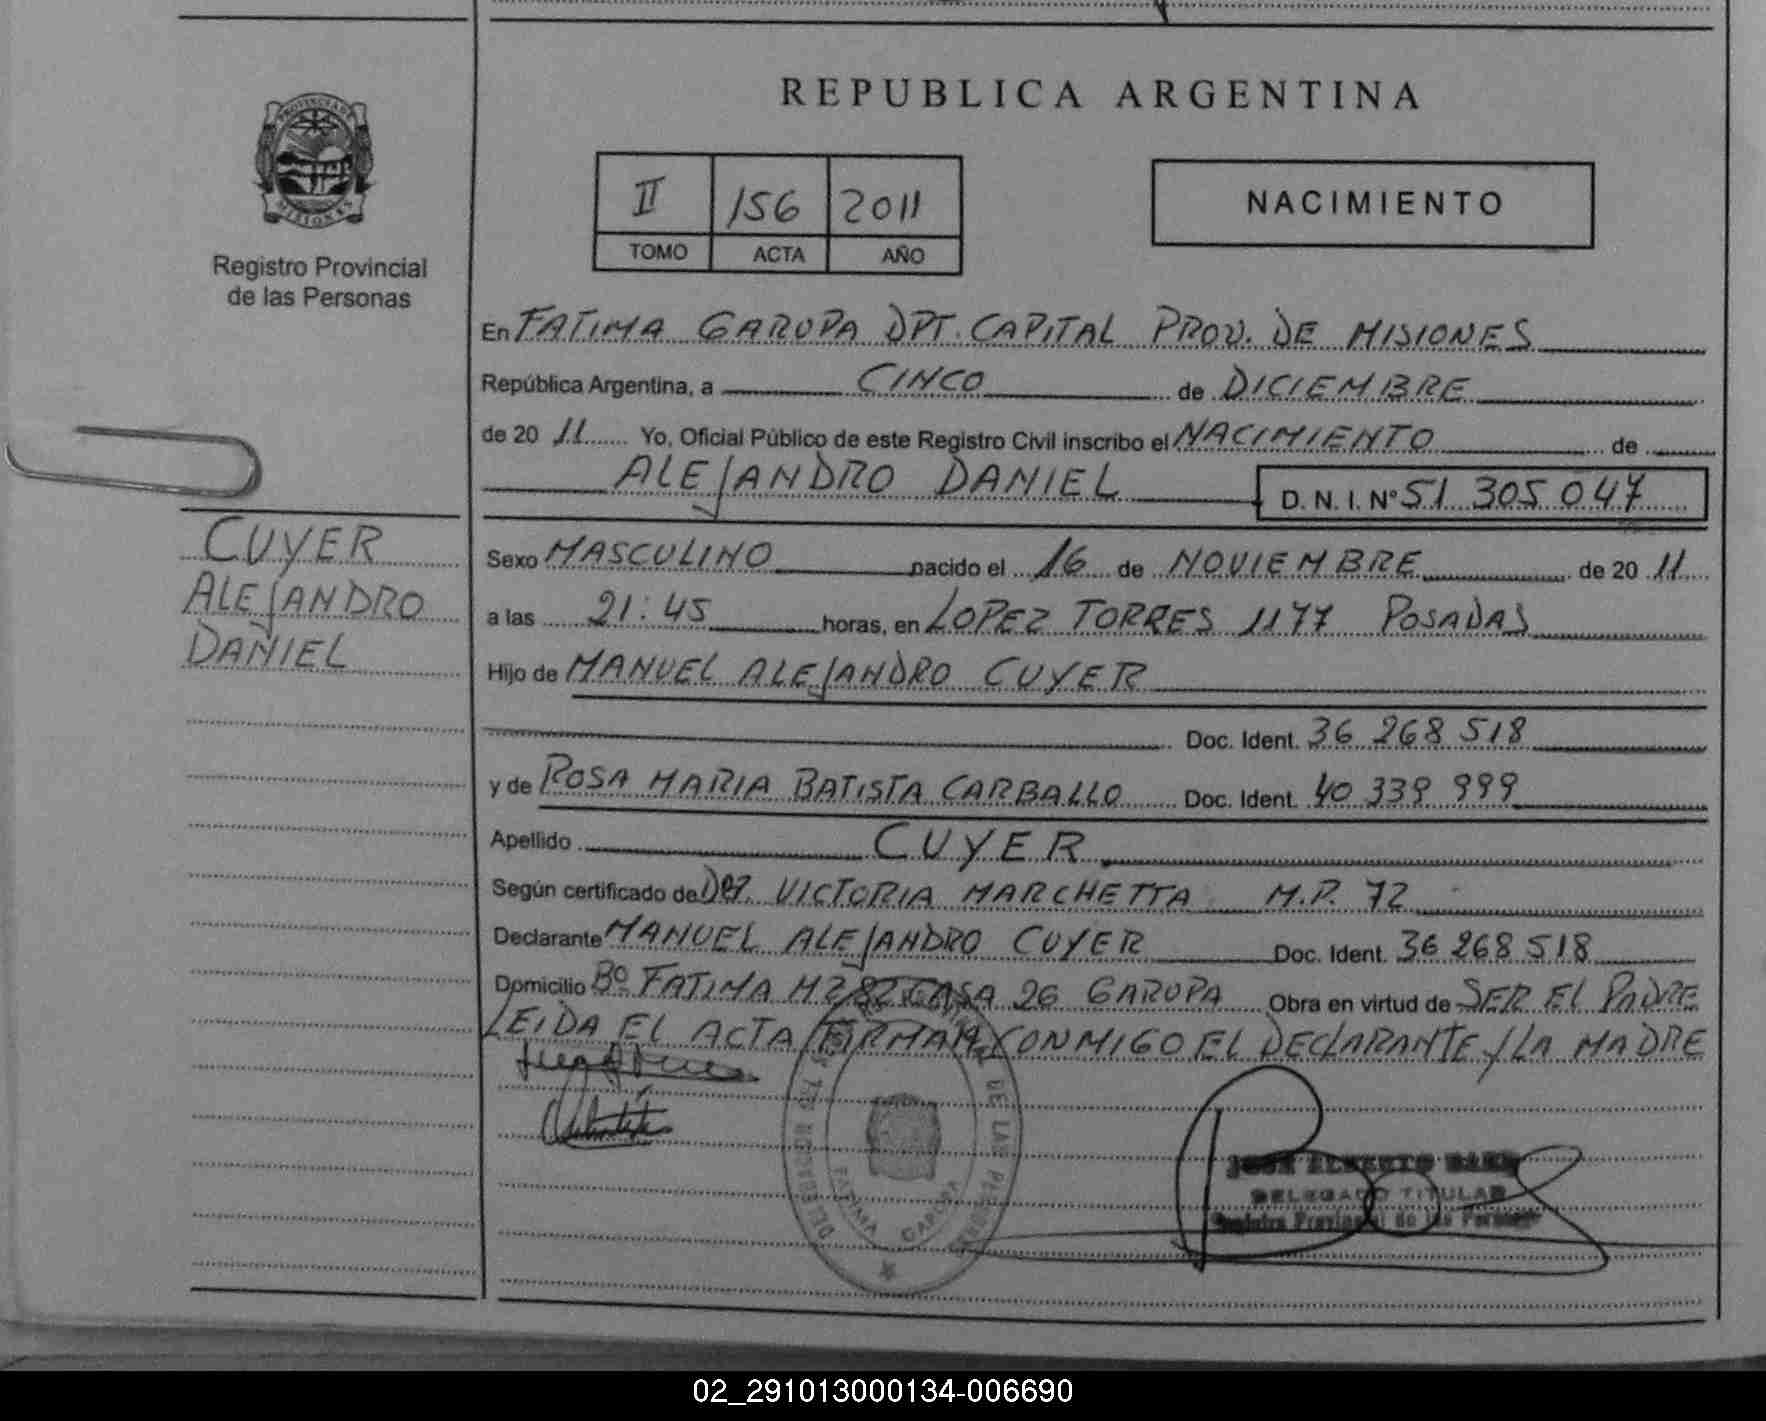 REPUBLICA ARGENTINA
PROVINCIA DE
MISIONES
Registro Provincial
de las Personas
II 156 2011
TOMO ACTA AÑO
NACIMIENTO
En FATIMA GARUPA DPT. CAPITAL PROV. DE MISIONES
República Argentina, a CINCO de DICIEMBRE
de 20 11 Yo, Oficial Público de este Registro Civil inscribo el NACIMIENTO de
ALEJANDRO DANIEL D. N. I. N° 51 305 047
CUYER
ALEJANDRO
DANIEL
Sexo MASCULINO nacido el 16 de NOVIEMBRE de 20 11
a las 21:45 horas, en LOPEZ TORRES 1177 POSADAS
Hijo de MANUEL ALEJANDRO CUYER
Doc. Ident. 36 268 518
y de ROSA MARIA BATISTA CARBALLO Doc. Ident. 40 339 999
Apellido CUYER
Según certificado de VICTORIA MARCHETTA M.P. 72
Declarante MANUEL ALEJANDRO CUYER Doc. Ident. 36 268 518
Domicilio Bº FATIMA MZ 82 CASA 26 GARUPA Obra en virtud de SER EL PADRE
LEIDA EL ACTA FIRMAN CONMIGO EL DECLARANTE Y LA MADRE
DE LAS
FATIMA GARUPA
DELEGADO TITULAR
Registro Provincial de las Personas
02_291013000134-006690